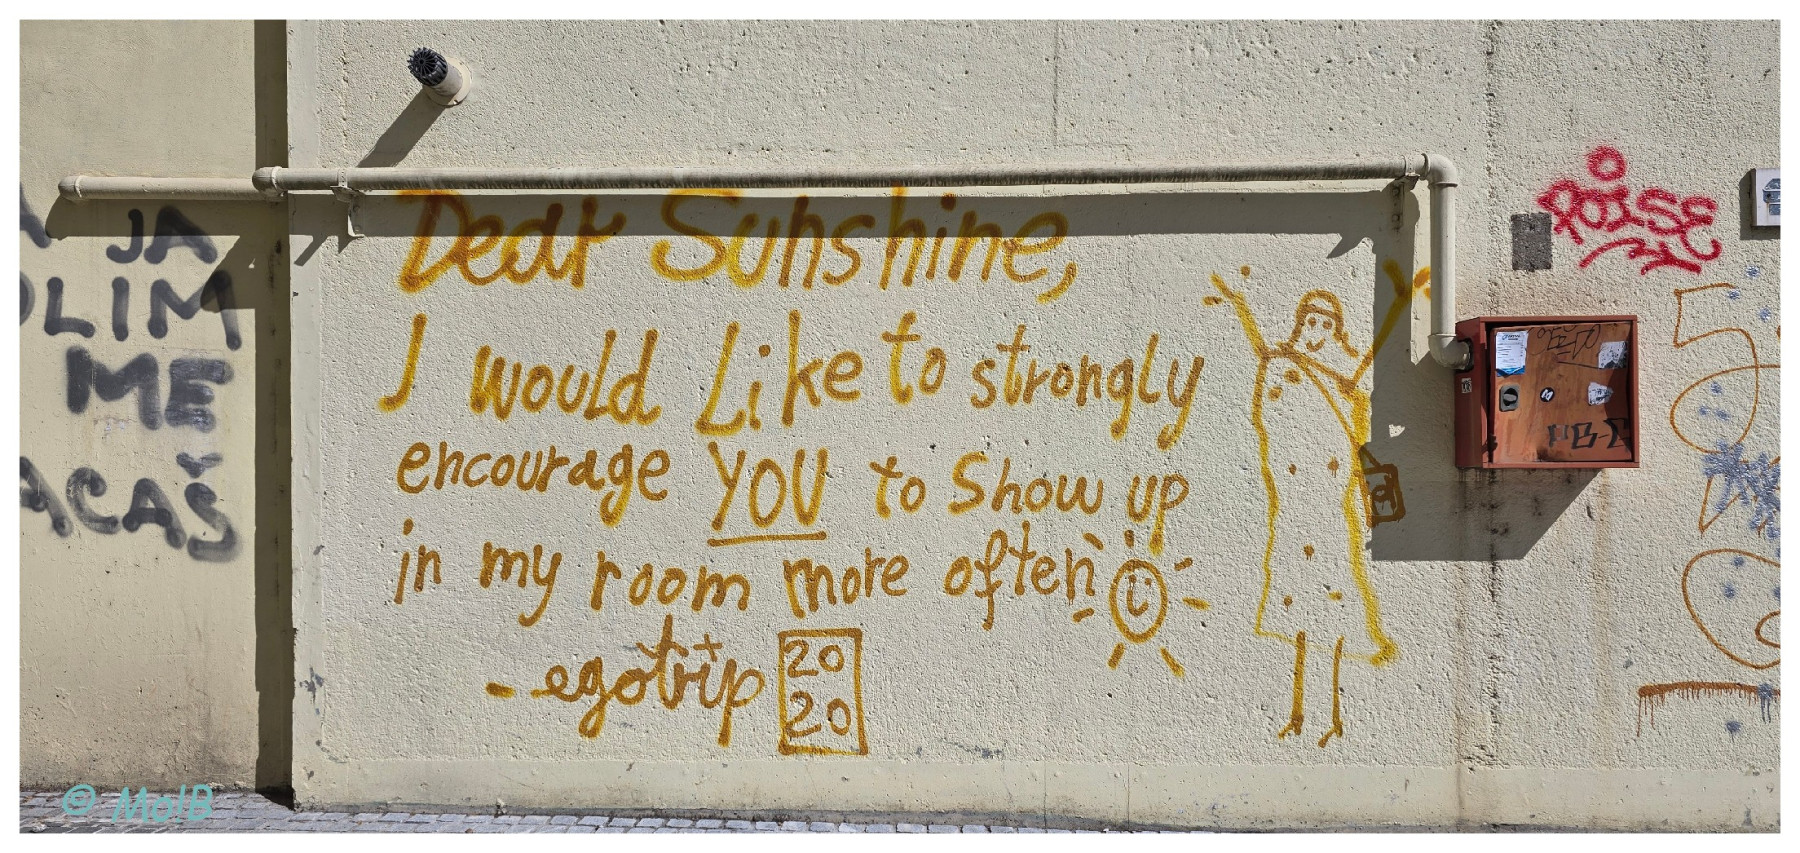 JA
ME
Dear Sunshine,
I would Like to strongly
encourage YOU to Show up
in my room more often
- egotrip 20
20
POISE
© Mo!B